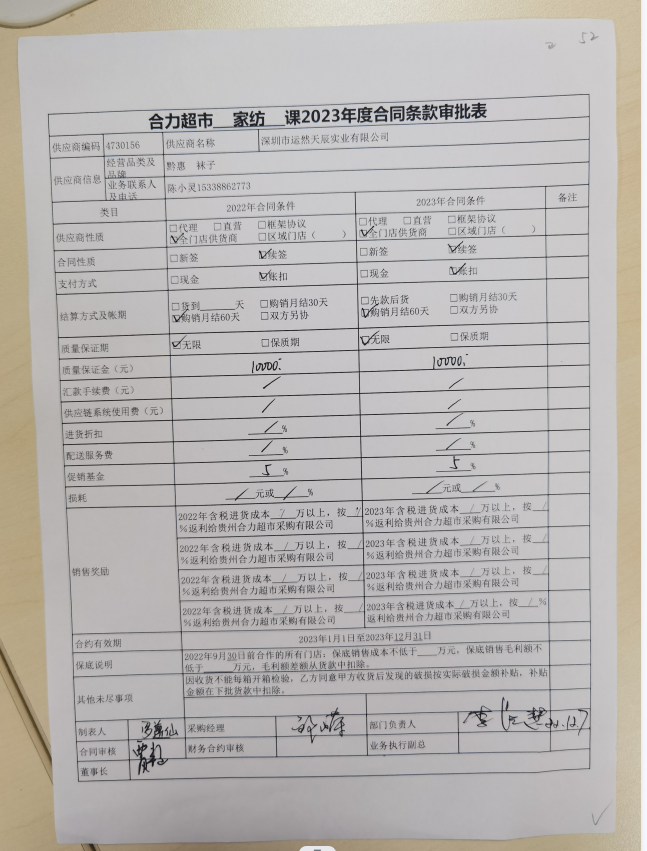 52
合力超市 家纺 课2023年度合同条款审批表
供应商编码 4730156 供应商名称 深圳市运然天辰实业有限公司
供应商信息 经营品类及品牌 黔惠 袜子
业务联系人及电话 陈小灵15338862773
类目 2022年合同条件 2023年合同条件 备注
供应商性质 □代理 □直营 □框架协议 ☑全门店供货商 □区域门店( ) □代理 □直营 □框架协议 ☑全门店供货商 □区域门店( )
合同性质 □新签 ☑续签 □新签 ☑续签
支付方式 □现金 ☑账扣 □现金 ☑账扣
结算方式及账期 □货到____天 □购销月结30天 ☑购销月结60天 □双方另协 □先款后货 □购销月结30天 ☑购销月结60天 □双方另协
质量保证期 ☑无限 □保质期 ☑无限 □保质期
质量保证金(元) 10000 10000
汇款手续费(元) / /
供应链系统使用费(元) / /
进货折扣 / % / %
配送服务费 / % / %
促销基金 5 % 5 %
损耗 / 元或 / % / 元或 / %
销售奖励
2022年含税进货成本 / 万以上，按 / %返利给贵州合力超市采购有限公司 2023年含税进货成本 / 万以上，按 / %返利给贵州合力超市采购有限公司
2022年含税进货成本 / 万以上，按 / %返利给贵州合力超市采购有限公司 2023年含税进货成本 / 万以上，按 / %返利给贵州合力超市采购有限公司
2022年含税进货成本 / 万以上，按 / %返利给贵州合力超市采购有限公司 2023年含税进货成本 / 万以上，按 / %返利给贵州合力超市采购有限公司
2022年含税进货成本 / 万以上，按 / %返利给贵州合力超市采购有限公司 2023年含税进货成本 / 万以上，按 / %返利给贵州合力超市采购有限公司
合约有效期 2023年1月1日至2023年12月31日
保底说明 2022年9月30日前合作的所有门店：保底销售成本不低于____万元，保底销售毛利额不低于____万元，毛利额差额从货款中扣除。
其他未尽事项 因收货不能每箱开箱检验，乙方同意甲方收货后发现的破损按实际破损金额补贴，补贴金额在下批货款中扣除。
制表人 采购经理 部门负责人
合同审核 财务合约审核 业务执行副总
董事长